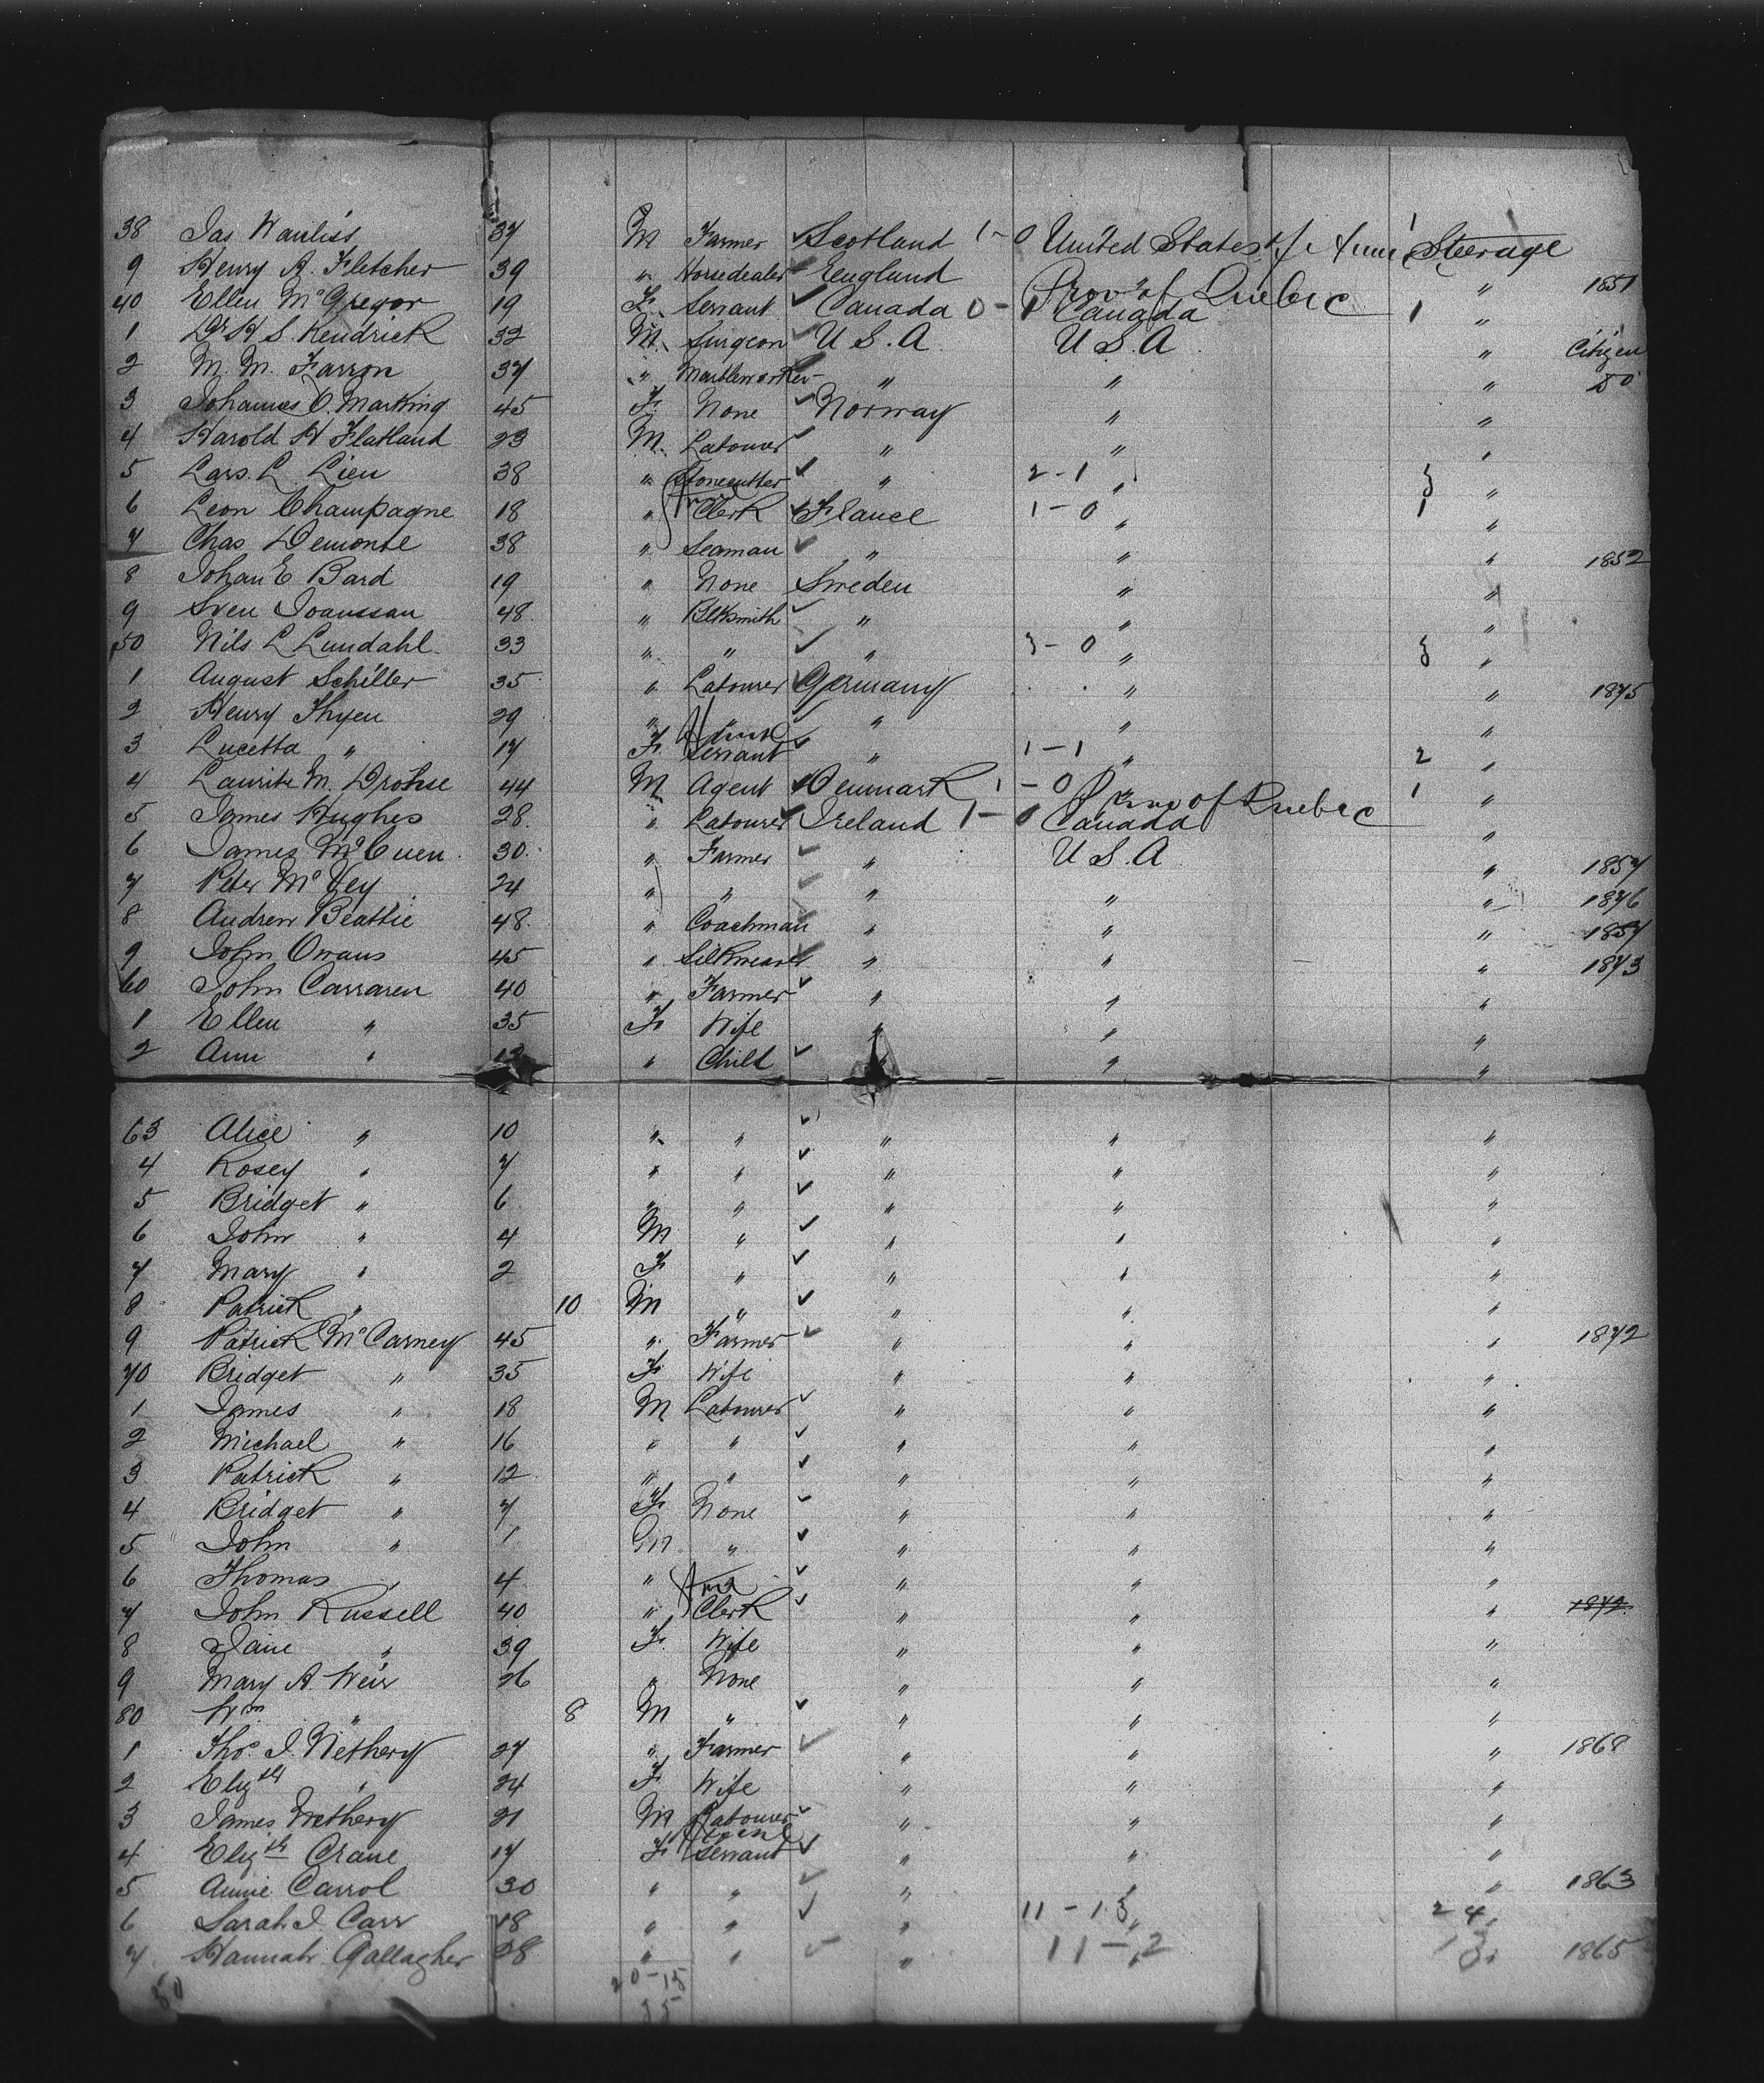 38 Jas Wauliss 37 M Farmer Scotland 1-0 United States of Amer Steerage
9 Henry A. Fletcher 39 " Horsedealer England " " 1851
40 Ellen McGregor 19 F. Servant Canada 0-1 Prov of Quebec Canada 1 "
1 Dr H S. Kendrick 32 M. Surgeon U S. A U S. A " Citizen
2 M. M. Farron 37 " Marbleworker " " " Do
3 Johannes O. Marking 45 F. None Norway " "
4 Harold H Flatland 23 M. Labourer " " "
5 Lars. L. Lien 38 " Stonecutter " 2-1 " 3 "
6 Leon Champagne 18 " Clerk France 1-0 " 1 "
7 Chas Demonte 38 " Seaman " " " 1852
8 Johan E Bard 19 " None Sweden " "
9 Sven Joanssan 48. " Blksmith " " "
50 Nils L Lundahl. 33 " " " 3-0 " 3 "
1 August Schiller 35 " Labourer Germany " " 1875
2 Henry Thyen 29 " " " " "
3 Lucetta " 17 F. Servant " 1-1 " 2 "
4 Laurits M. Drohse 44 M Agent Denmark 1-0 " 1 "
5 James Hughes 28. " Labourer Ireland 1-0 Prov of Quebec Canada "
6 James McCuen. 30. " Farmer " U S. A " 1857
7 Peter McVey 24 " " " " " 1876
8 Andrew Beattie 48. " Coachman " " " 1857
9 John Owans 45 " Silkweaver " " " 1873
60 John Carraren 40 " Farmer " " "
1 Ellen " 35 F. Wife " " "
2 Ann " 12 " Child " " "
63 Alice " 10 " " " " "
4 Rosey " 7 " " " " "
5 Bridget " 6 " " " " "
6 John " 4 M " " " "
7 Mary " 2 F " " " "
8 Patrick " 10 M " " " "
9 Patrick McCarney 45 " Farmer " " " 1872
70 Bridget " 35 F. Wife " " "
1 James " 18 M Labourer " " "
2 Michael " 16 " " " " "
3 Patrick " 12 " " " " "
4 Bridget " 7 F None " " "
5 John " 1 M " " " "
6 Thomas " 4 " " " "
7 John Russell 40 " Clerk " " " 1872
8 Jane " 39 F. Wife " " "
9 Mary A Weir 26 " None " " "
80 Wm " 8 M " " " "
1 Thos. J. Nethery 27 " Farmer " " " 1868
2 Elizth " 24 F. Wife " " "
3 James Nethery 21 M Labourer " " "
4 Elizth Crane 17 F Servant " " "
5 Annie Carrol 30 " " " " " 1863
6 Sarah J. Carr 18 " " " 11-13 " 24 "
7 Hannah Gallagher 28 " " " 11-2 " 13 " 1865
50 20-15
35